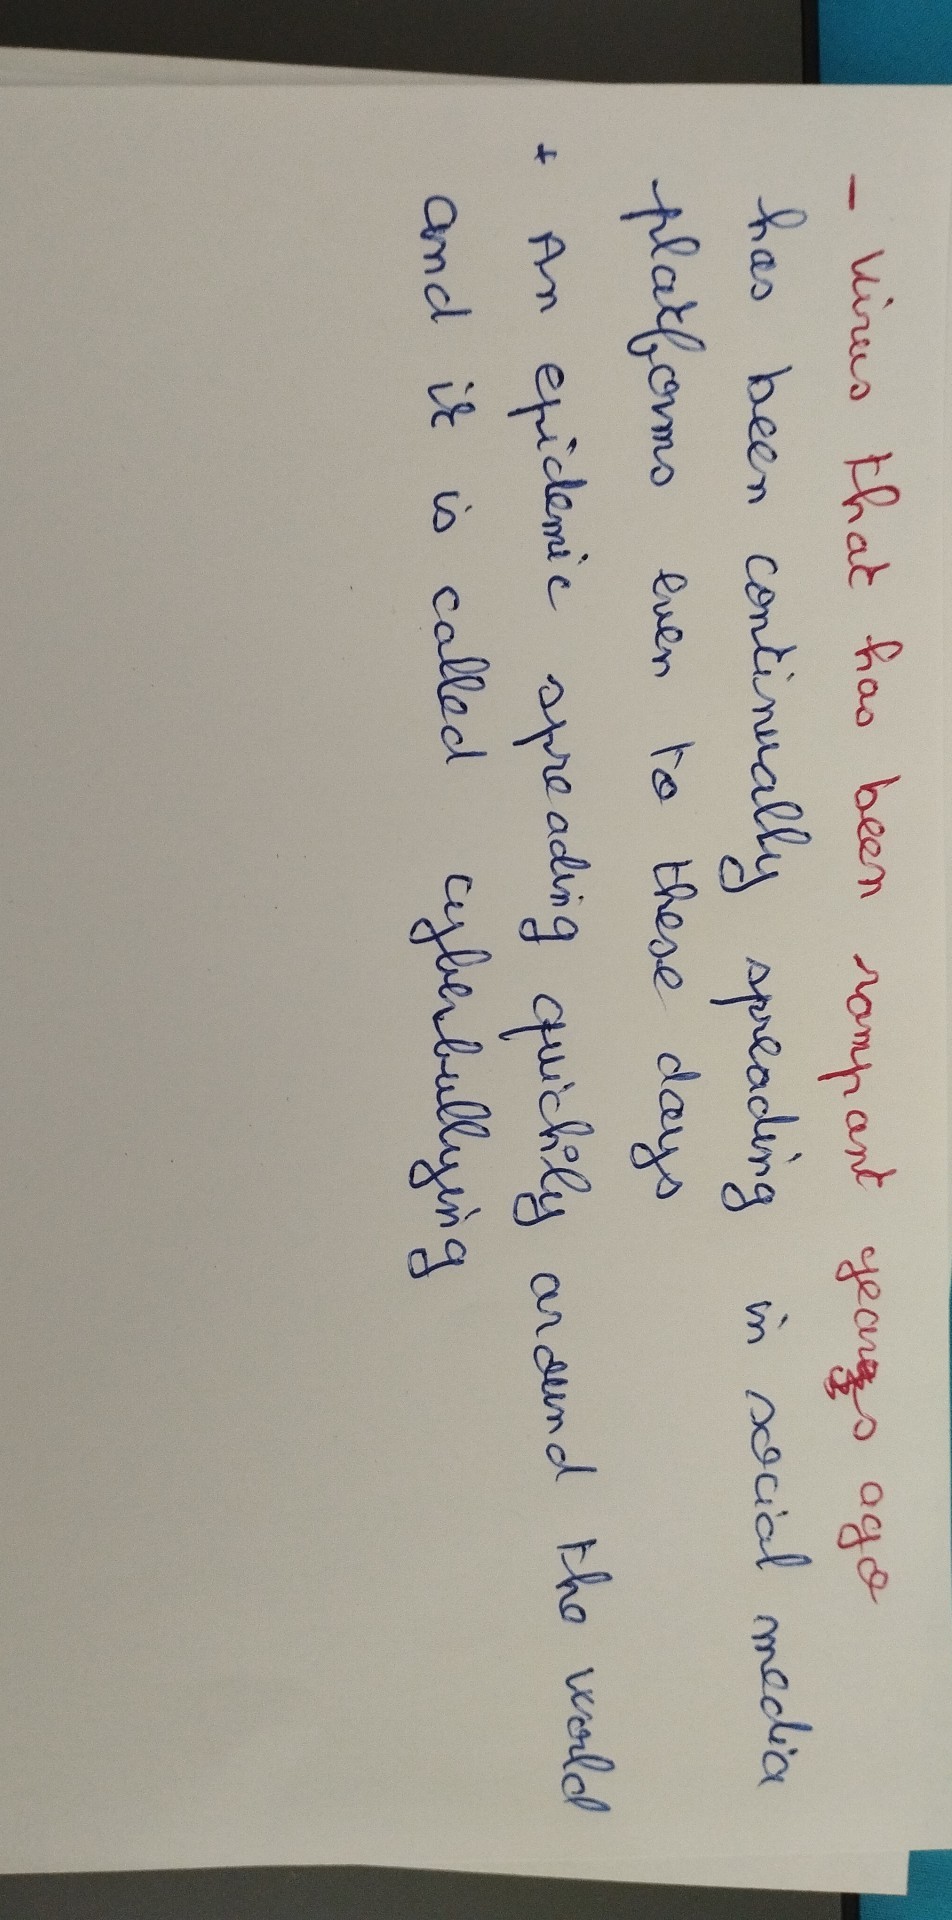 - Virus that has been rampant years ago
has been continually spreading in social media
platforms even to these days
+ An epidemic spreading quickly around the world
and it is called cyberbullying